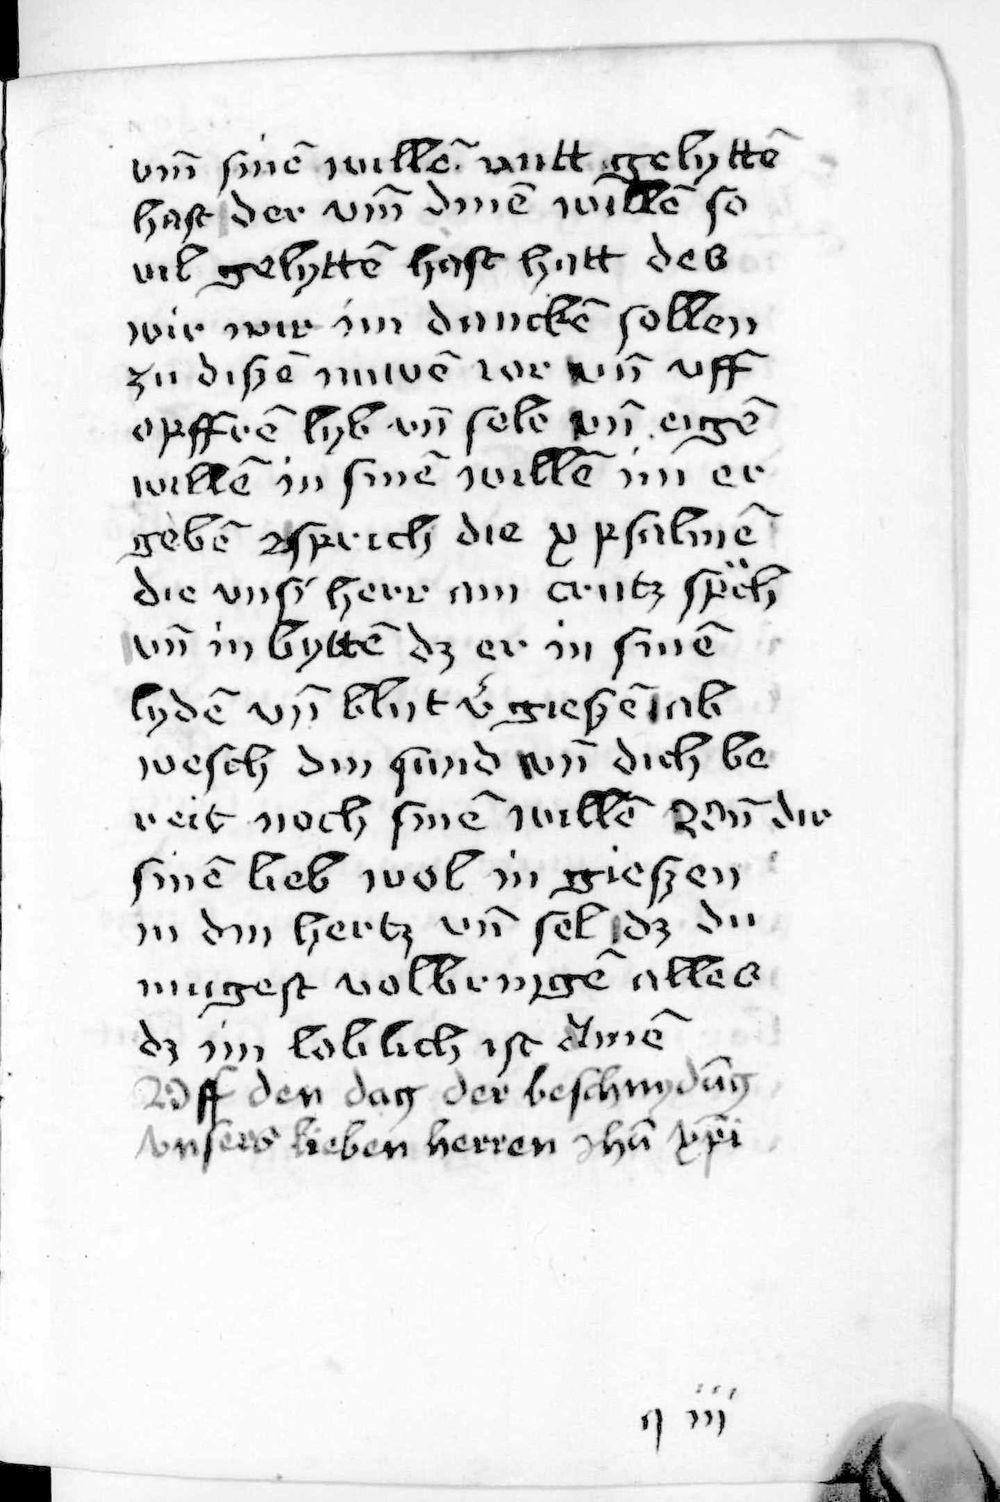 vm̄ sinē willē nutt gelyttē
hast der vm̄ dinē willē so
vil gelyttē hast hatt des
wir wir im danckē sollen
zu dißē nuwē ior vn̄ vff
opffrē lyb vn̄ sele vn̄ eigē
willē in sinē willē im̄ er
gebē sprich die x psalmē
die vnsʼ herr am crutz sp̈ch
vn̄ in byttē dz er in sinē
lydē vn̄ blut vʼgießē ab
wesch din sund vn̄ dich be
reit noch sinē willē Vn̄ dir
sinē lieb wol in gießen
in din hertz vn̄ sel dz du
mugest volbringē alles
dz im loblich ist Amē
Vff den dag der beschnydūg
vnsers lieben herren Jhū xp̄i
q iii